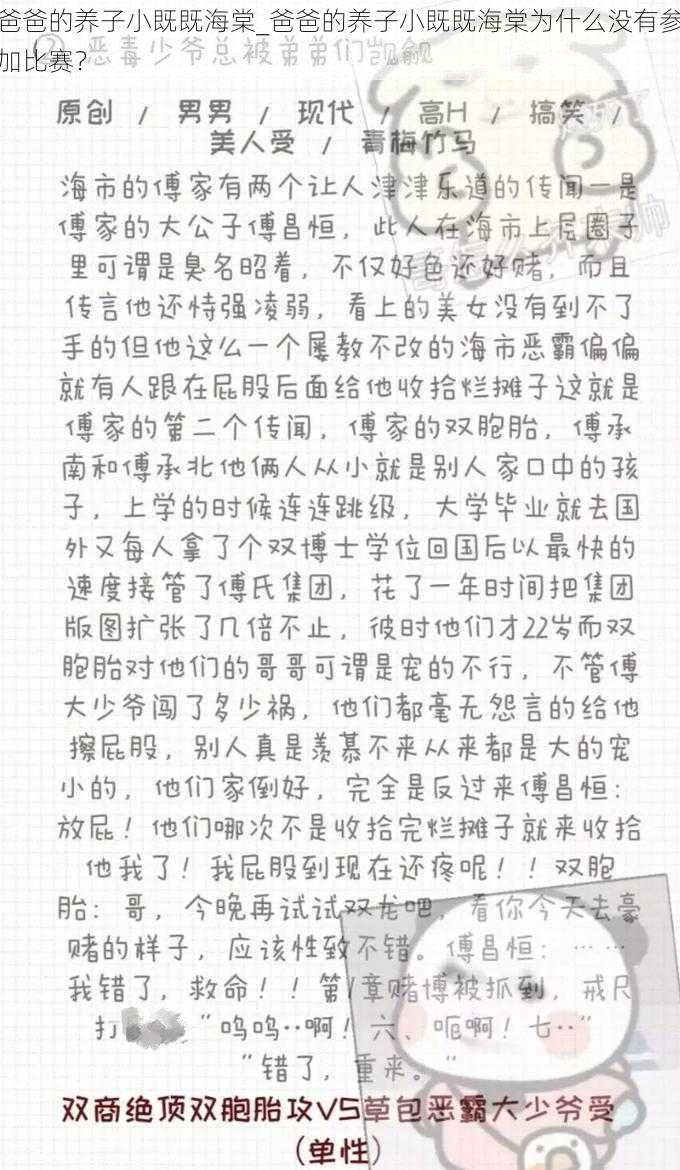 爸爸的养子小既既海棠_爸爸的养子小既既海棠为什么没有参
加比赛？
② 恶毒少爷总被弟弟们觊觎
原创 / 男男 / 现代 / 高H / 搞笑 /
美人受 / 青梅竹马
海市的傅家有两个让人津津乐道的传闻一是
傅家的大公子傅昌恒，此人在海市上层圈子
里可谓是臭名昭着，不仅好色还好赌，而且
传言他还恃强凌弱，看上的美女没有到不了
手的但他这么一个屡教不改的海市恶霸偏偏
就有人跟在屁股后面给他收拾烂摊子这就是
傅家的第二个传闻，傅家的双胞胎，傅承
南和傅承北他俩人从小就是别人家口中的孩
子，上学的时候连连跳级，大学毕业就去国
外又每人拿了个双博士学位回国后以最快的
速度接管了傅氏集团，花了一年时间把集团
版图扩张了几倍不止，彼时他们才22岁而双
胞胎对他们的哥哥可谓是宠的不行，不管傅
大少爷闯了多少祸，他们都毫无怨言的给他
擦屁股，别人真是羡慕不来从来都是大的宠
小的，他们家倒好，完全是反过来傅昌恒：
放屁！他们哪次不是收拾完烂摊子就来收拾
他我了！我屁股到现在还疼呢！！双胞
胎：哥，今晚再试试双龙吧，看你今天去豪
赌的样子，应该性致不错。傅昌恒：……
我错了，救命！！第1章赌博被抓到，戒尺
打 “呜呜··啊！六、呃啊！七··”
“错了，重来。”
双商绝顶双胞胎攻VS草包恶霸大少爷受
（单性）